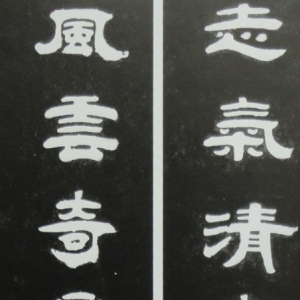 志氣清
風雲奇